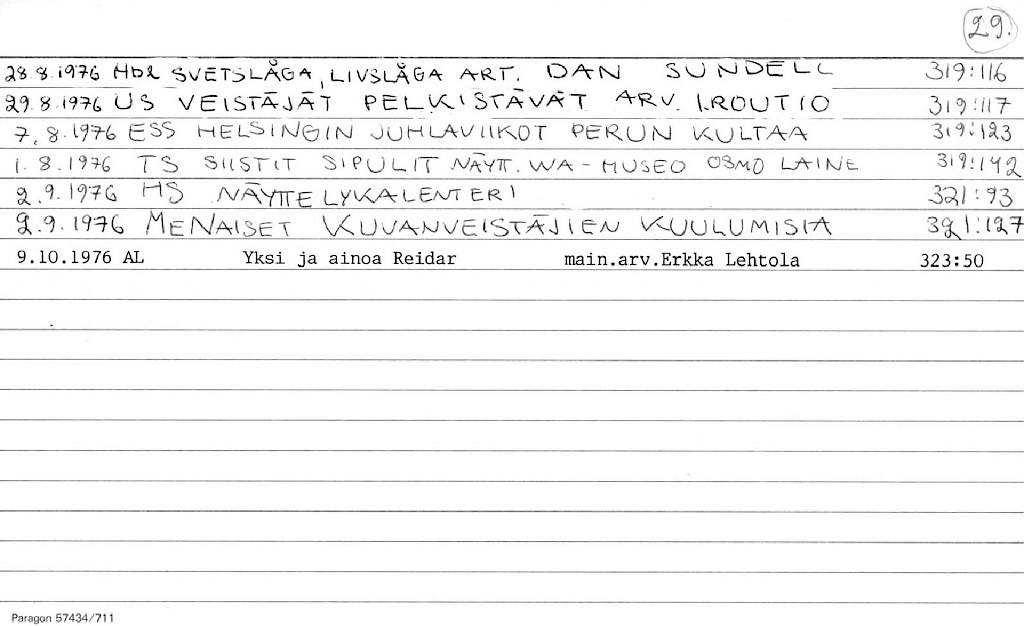 29.
28.8.1976 Hbl SVETSLÅGA, LIVSLÅGA ART. DAN SUNDELL 319:116
29.8.1976 US VEISTÄJÄT PELKISTÄVÄT ARV. I.ROUTIO 319:117
7.8.1976 ESS HELSINGIN JUHLAVIIKOT PERUN KULTAA 319:123
1.8.1976 TS SIISTIT SIPULIT NÄYTT. WA-MUSEO OSMO LAINE 319:142
2.9.1976 HS NÄYTTELYKALENTERI 321:93
2.9.1976 MENAISET KUVANVEISTÄJIEN KUULUMISIA 321:127
9.10.1976 AL Yksi ja ainoa Reidar main.arv.Erkka Lehtola 323:50
Paragon 57434/711